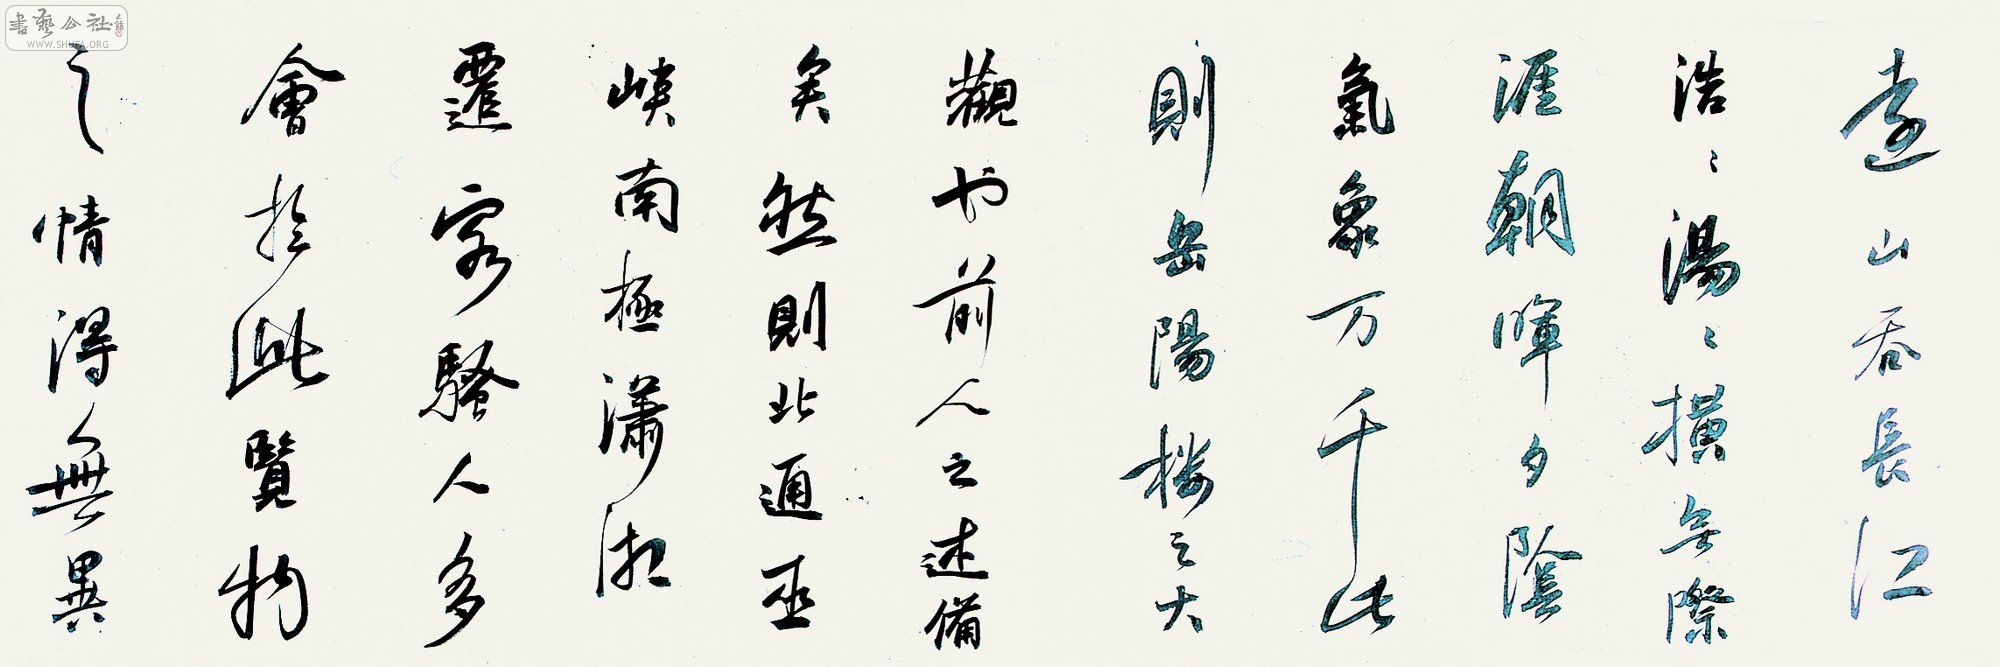 遠山吞長江
浩〻湯〻橫無際
涯朝暉夕陰
氣象万千此
則岳陽樓之大
觀也前人之述備
矣然則北通巫
峽南極瀟湘
遷客騷人多
會於此覽物
之情得無異
書藝公社
WWW.SHUFA.ORG